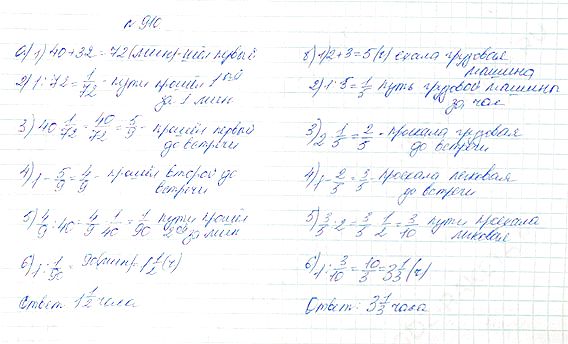 № 910.
а) 1) 40+32 = 72 (мин) - шёл первый
2) 1:72 = 1/72 - пути прошёл 1ый
за 1 мин
3) 40·1/72 = 40/72 = 5/9 - прошёл первый
до встречи
4) 1 - 5/9 = 4/9 - прошёл второй до
встречи
5) 4/9 : 40 = 4/9 · 1/40 = 1/90 пути прошёл
2ой за мин
6) 1 : 1/90 = 90(мин) = 1 1/2 (ч)
Ответ: 1 1/2 часа
б) 1) 2+3 = 5 (ч) ехала грузовая
машина
2) 1:5 = 1/5 путь грузовой машины
за час
3) 2·1/5 = 2/5 - проехала грузовая
до встречи
4) 1 - 2/5 = 3/5 - проехала легковая
до встречи
5) 3/5 : 2 = 3/5 · 1/2 = 3/10 пути проехала
легковая
6) 1 : 3/10 = 10/3 = 3 1/3 (ч)
Ответ: 3 1/3 часа